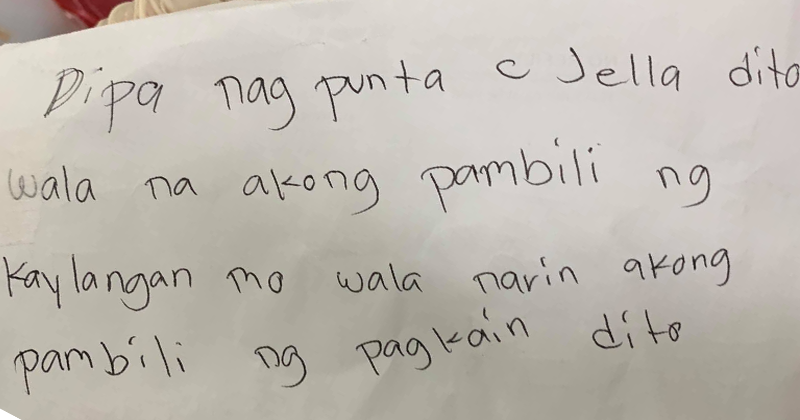 Dipa nag punta c Jella dito
wala na akong pambili ng
Kaylangan mo wala narin akong
pambili ng pagkain dito